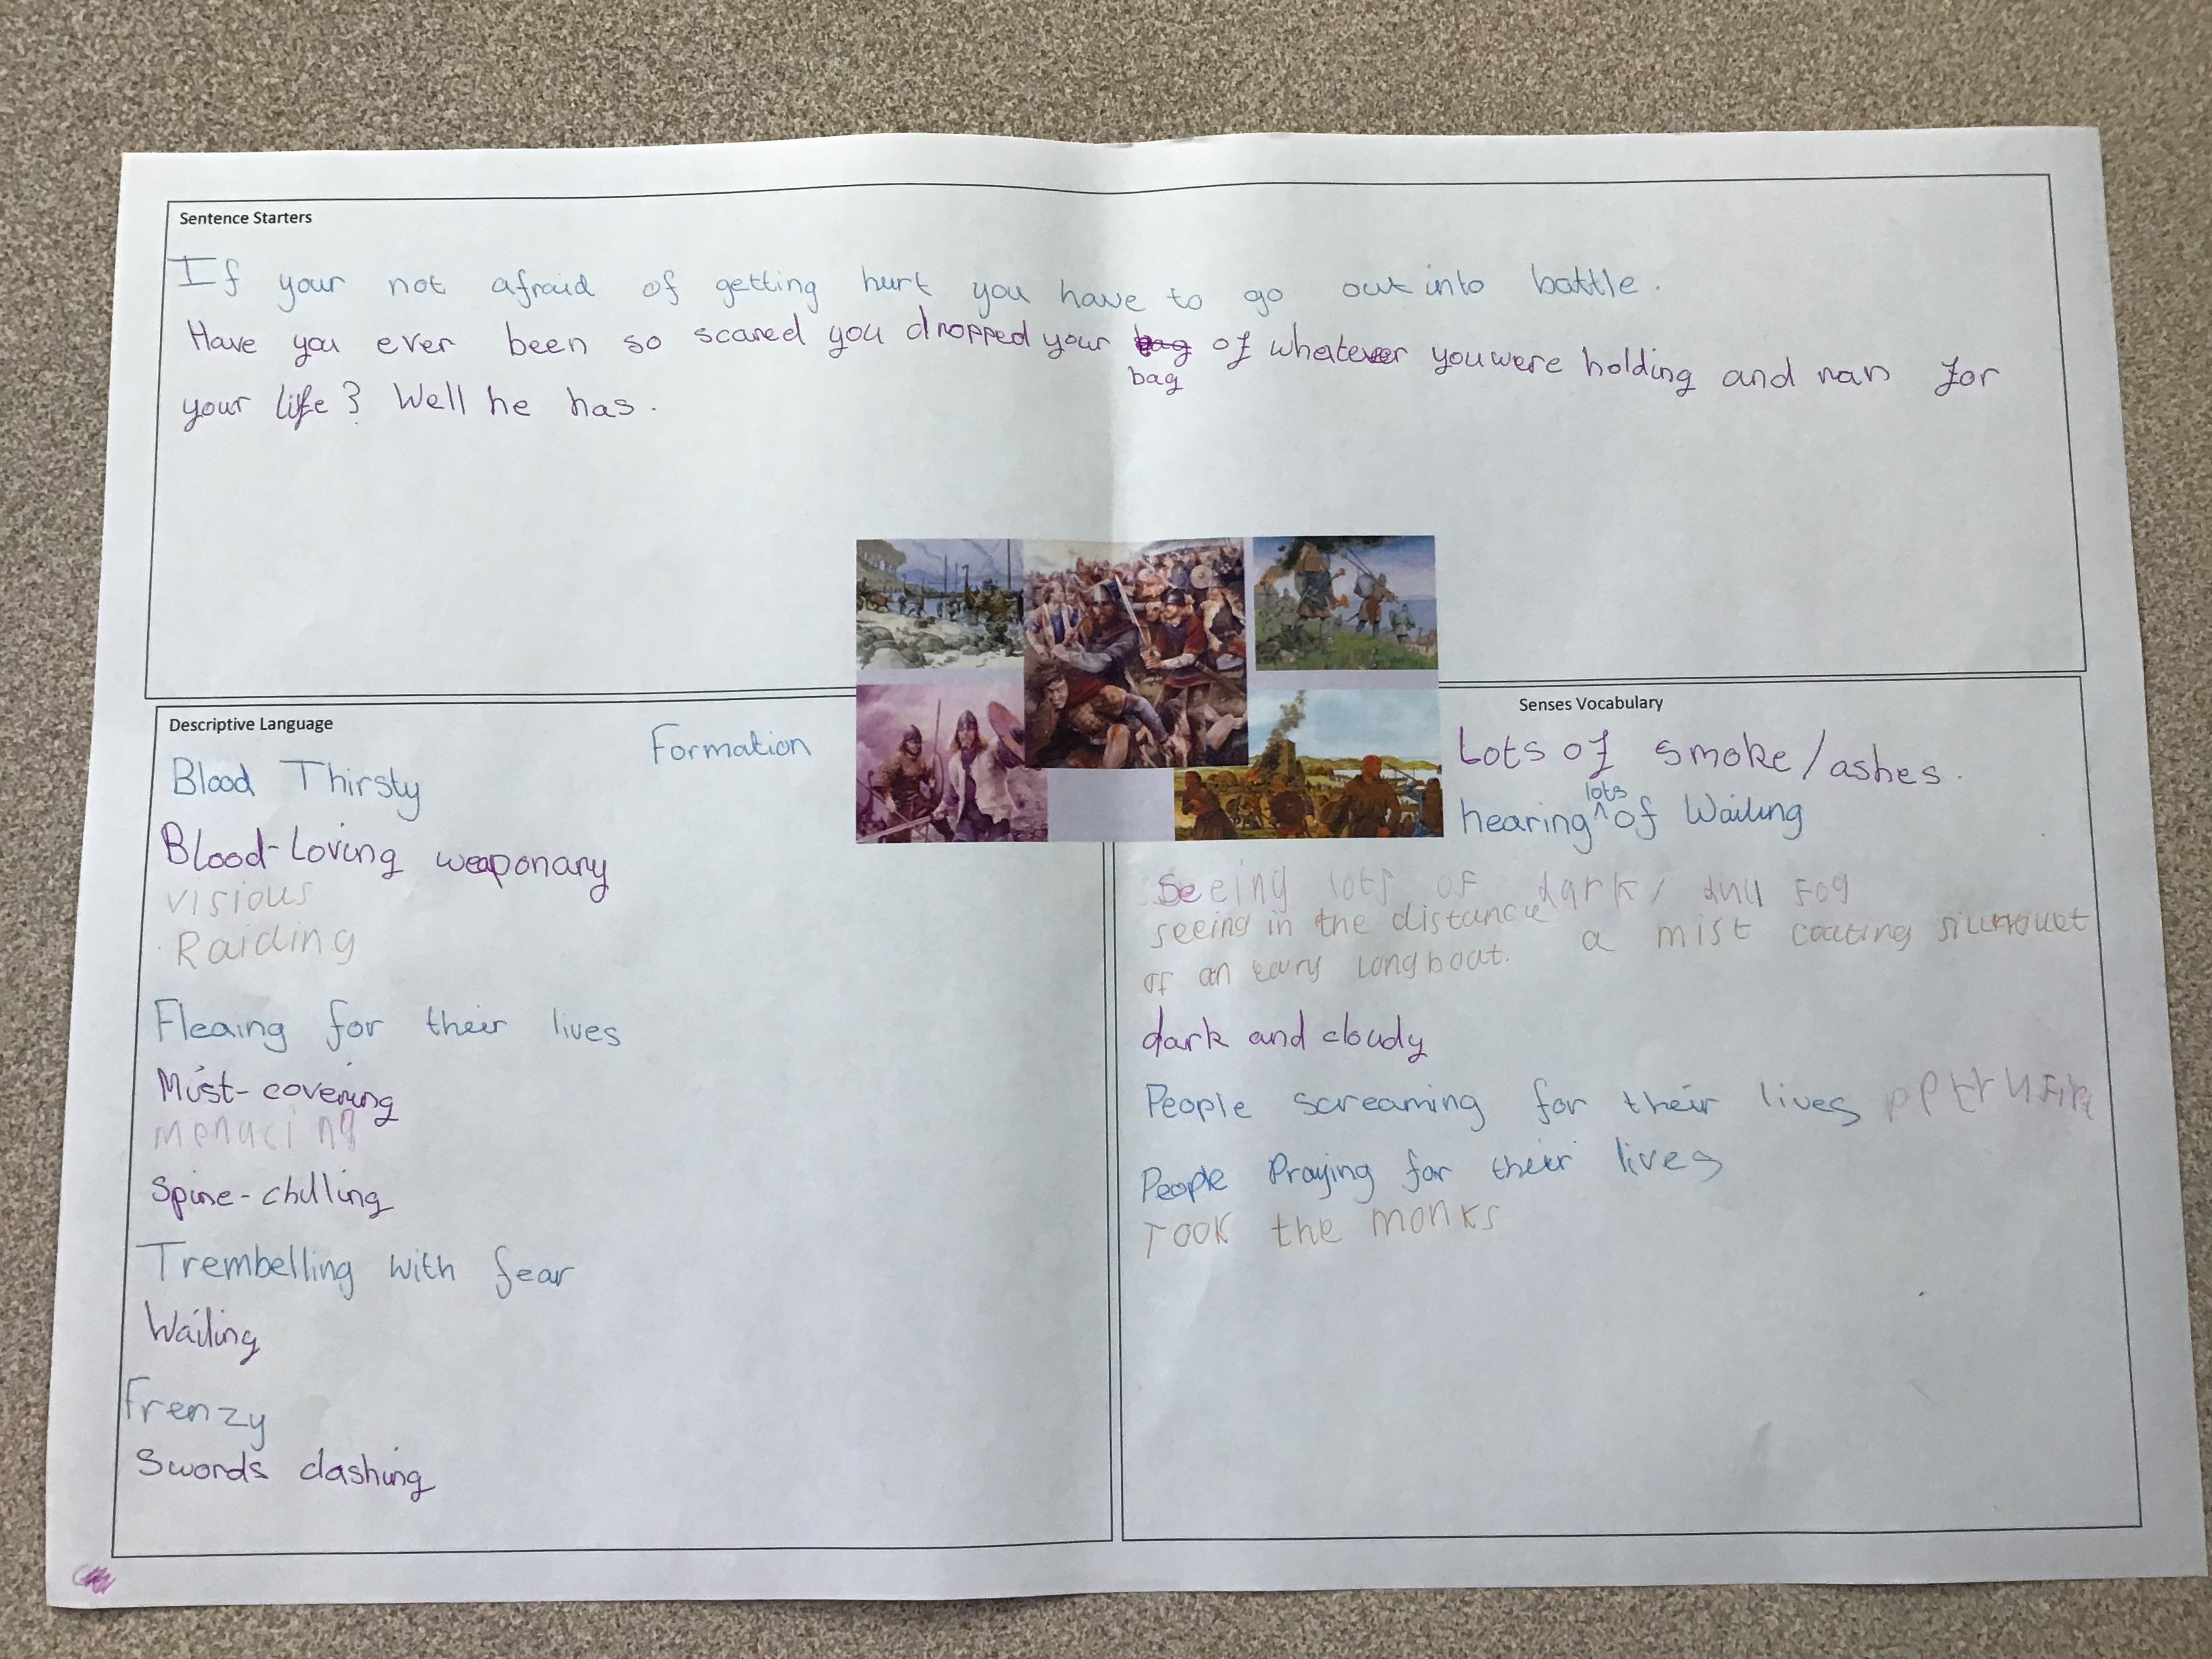 Sentence Starters
If your not afraid of getting hurt you have to go out into battle.
Have you ever been so scared you dropped your bag of whatever you were holding and ran for
bag
your life? Well he has.
Descriptive Language
Formation
Blood Thirsty
Blood-Loving weaponary
visious
Raiding
Fleaing for their lives
Mist-covering
menacing
Spine-chilling
Trembelling with fear
Wailing
frenzy
Swords clashing
Senses Vocabulary
Lots of smoke/ashes.
lots
hearing ^ of Wailing
Seeing lots of dark/ dull Fog
seeing in the distance a mist coating
of an longboat.
dark and cloudy
People screaming for their lives
People Praying for their lives
Took the monks